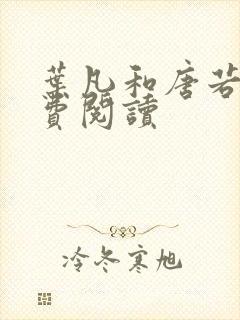 葉凡和唐若
費閱讀
冷冬寒旭